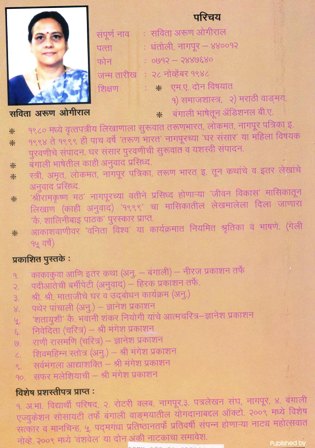 परिचय
संपूर्ण नाव : सविता अरूण ओगीराल
पत्ता : धंतोली, नागपूर – ४४००१२
फोन : ०७१२ – २४४७६४०
जन्म तारीख : २८ नोव्हेंबर १९४८
शिक्षण : * एम.ए. दोन विषयात
१) समाजशास्त्र, २) मराठी वाङमय,
* बंगाली भाषेतून ॲडिशनल बी.ए.
सविता अरूण ओगीराल
* १९८० मध्ये वृत्तपत्रीय लिखाणाला सुरूवात तरूणभारत, लोकमत, नागपूर पत्रिका इ.
* १९९४ ते १९९९ ही पाच वर्षे 'तरूण भारत' नागपूरच्या 'घर संसार' या महिला विषयक
पुरवणीचे संपादन, घर संसार पुरवणीची सुरूवात व यशस्वी संपादन.
* बंगाली भाषेतील काही अनुवाद प्रसिध्द.
* स्त्री, अमृत, लोकमत, नागपूर पत्रिका, तरूण भारत इ. तून कथांचे व इतर लेखांचे
अनुवाद प्रसिध्द.
* 'श्रीरामकृष्ण मठ' नागपूरच्या वतीने प्रसिध्द होणाऱ्या 'जीवन विकास' मासिकातून
लिखाण (काही अनुवाद) '१९९९' चा मासिकातील लेखमालेला दिला जाणारा
'कै. शालिनीबाई पाठक' पुरस्कार प्राप्त.
* आकाशवाणीवर 'वनिता विश्व' या कार्यक्रमात नियमित श्रृतिका व भाषणे. (गेली
१५ वर्षे)
प्रकाशित पुस्तके :
१. काकाकुवा आणि इतर कथा (अनु. – बंगाली) – नीरज प्रकाशन तर्फे
२. पदीआतंची बर्मीपेटी (अनुवाद) – हिरक प्रकाशन तर्फे.
३. श्री. श्री. माताजीचे घर व उदबोधन कार्यक्रम (अनु.)
४. पथेर पांचाली (अनु.) – ज्ञानेश प्रकाशन
५. 'शतायुशी' कै. भवानी शंकर नियोगी यांचे आत्मचरित्र–ज्ञानेश प्रकाशन
६. निवेदिता (चरित्र) – श्री मंगेश प्रकाशन
७. राणी रासमणि (चरित्र) – ज्ञानेश प्रकाशन
८. शिवमहिम्न स्तोत्र (अनु.) – श्री मंगेश प्रकाशन
९. सर्वमंगला आद्याशक्ति – श्री मंगेश प्रकाशन
१०. सफर मलेशियाची – श्री मंगेश प्रकाशन
विशेष प्रशस्तीपत्र प्राप्त :
१. अ.भा. विद्यार्थी परिषद, २. रोटरी क्लब, नागपूर, ३. पत्रलेखन संघ, नागपूर, ४. बंगाली
एज्युकेशन सोसायटी तर्फे बंगाली वाङमयातील योगदानाबद्दल ऑक्टो. २००९ मध्ये विशेष
सत्कार व मानचिन्ह, ५. पदमगंधा प्रतिष्ठानतर्फे प्रतिवर्षी संपन्न होणाऱ्या नाट्य महोत्सवात
नोव्हें. २००९ मध्ये 'वशवेल' या दोन अंकी नाटकाचा समावेश.
Published by